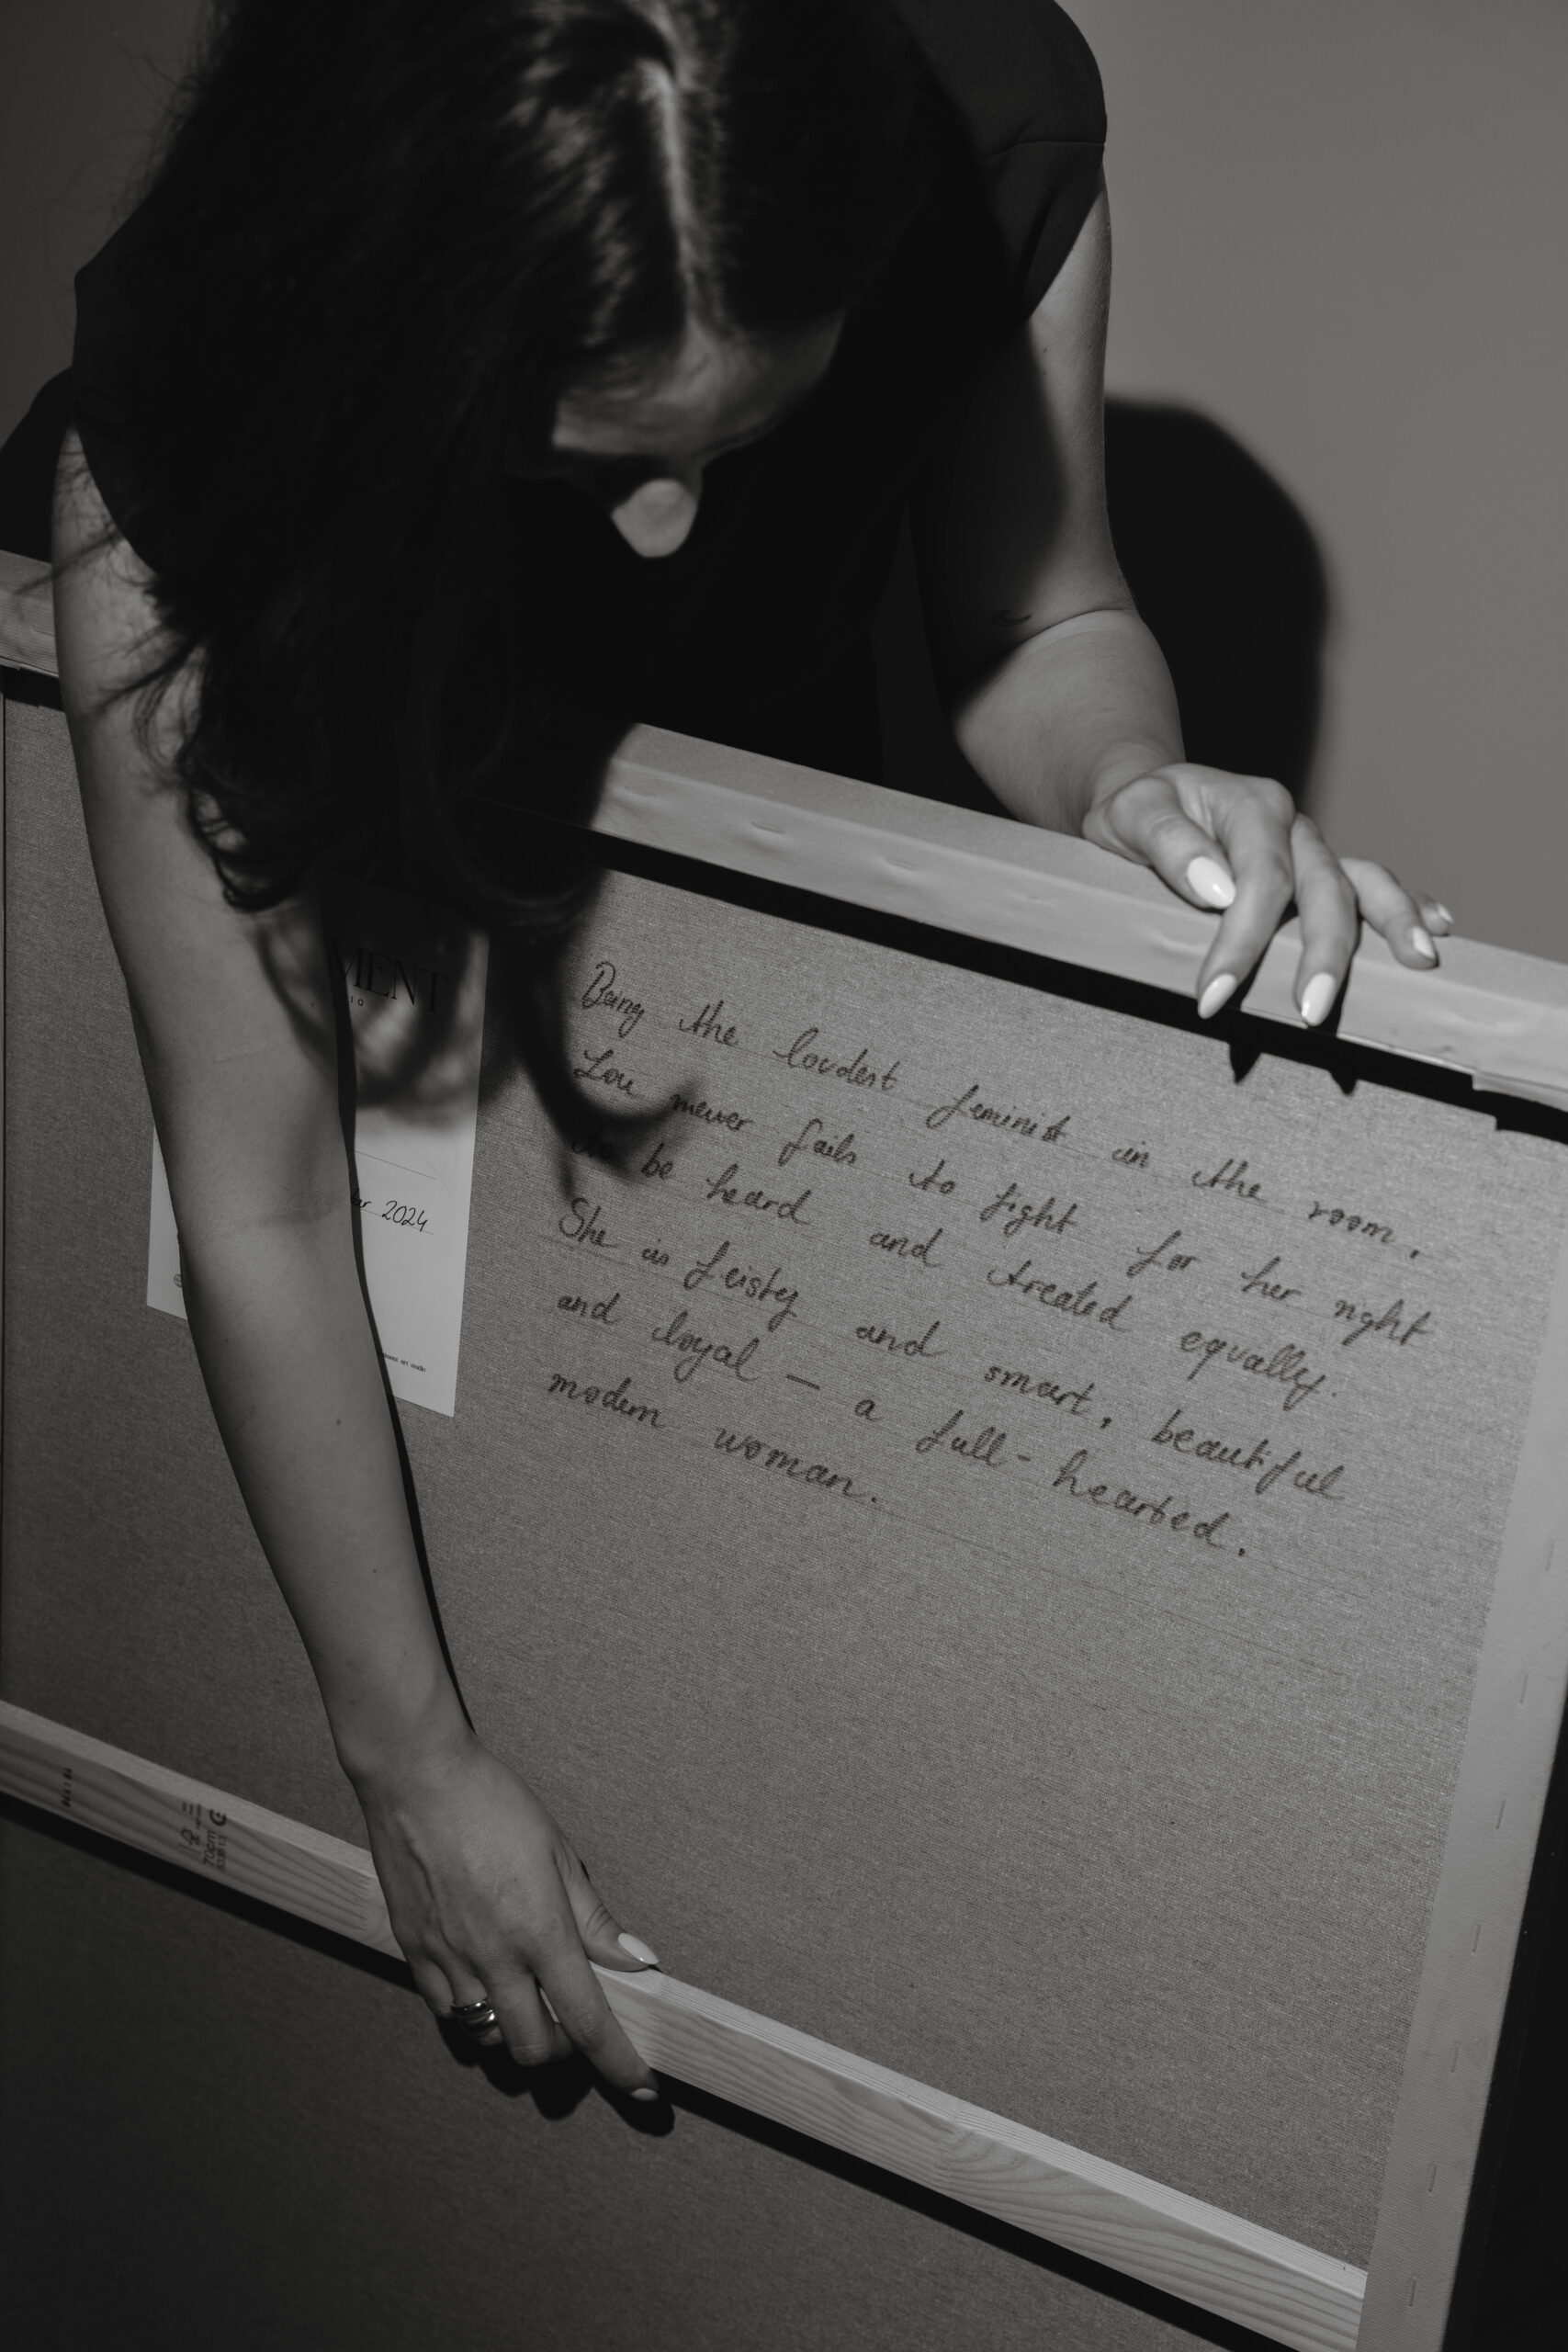 MENT
2024
Being the loudest feminist in the room,
Lou never fails to fight for her right
to be heard and treated equally.
She is feisty and smart, beautiful
and loyal — a full-hearted.
modern woman.
70cm